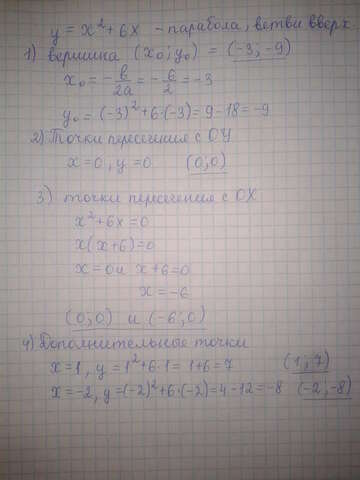 y = x² + 6x - парабола, ветви вверх
1) вершина (x₀; y₀) = (-3; -9)
x₀ = -в/2a = -6/2 = -3
y₀ = (-3)² + 6·(-3) = 9 - 18 = -9
2) Точки пересечения с OY
x = 0, y = 0 (0;0)
3) точки пересечения с OX
x² + 6x = 0
x(x + 6) = 0
x = 0 и x + 6 = 0
x = -6
(0;0) и (-6;0)
4) Дополнительные точки
x = 1, y = 1² + 6·1 = 1 + 6 = 7 (1; 7)
x = -2, y = (-2)² + 6·(-2) = 4 - 12 = -8 (-2; -8)